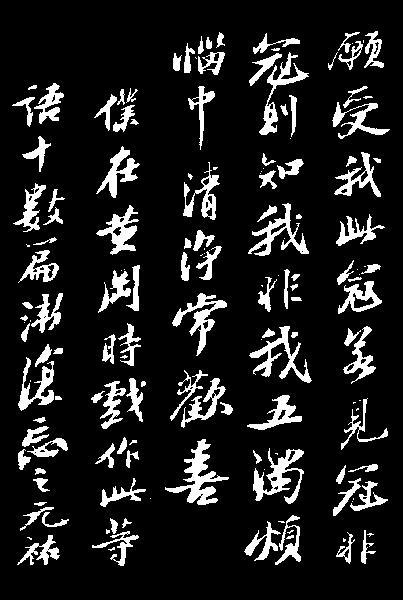 願受我此冠若見冠非
冠則知我非我五濁煩
惱中清淨常歡喜
僕在黄岡時戲作此等
語十數篇漸復忘之元祐